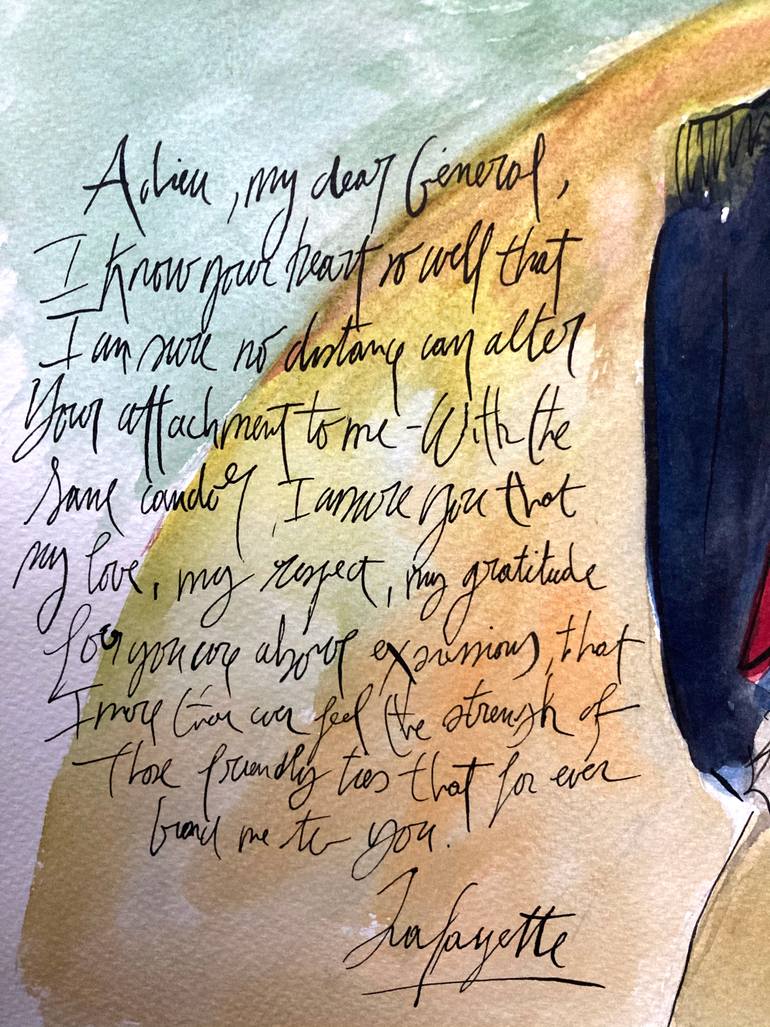 Adieu, my dear Général,
I know your heart so well that
I am sure no distance can alter
Your attachment to me - With the
same candor, I assure you that
my love, my respect, my gratitude
for you are above expressions, that
I more than ever feel the strength of
those friendly ties that for ever
bound me to you.
Lafayette